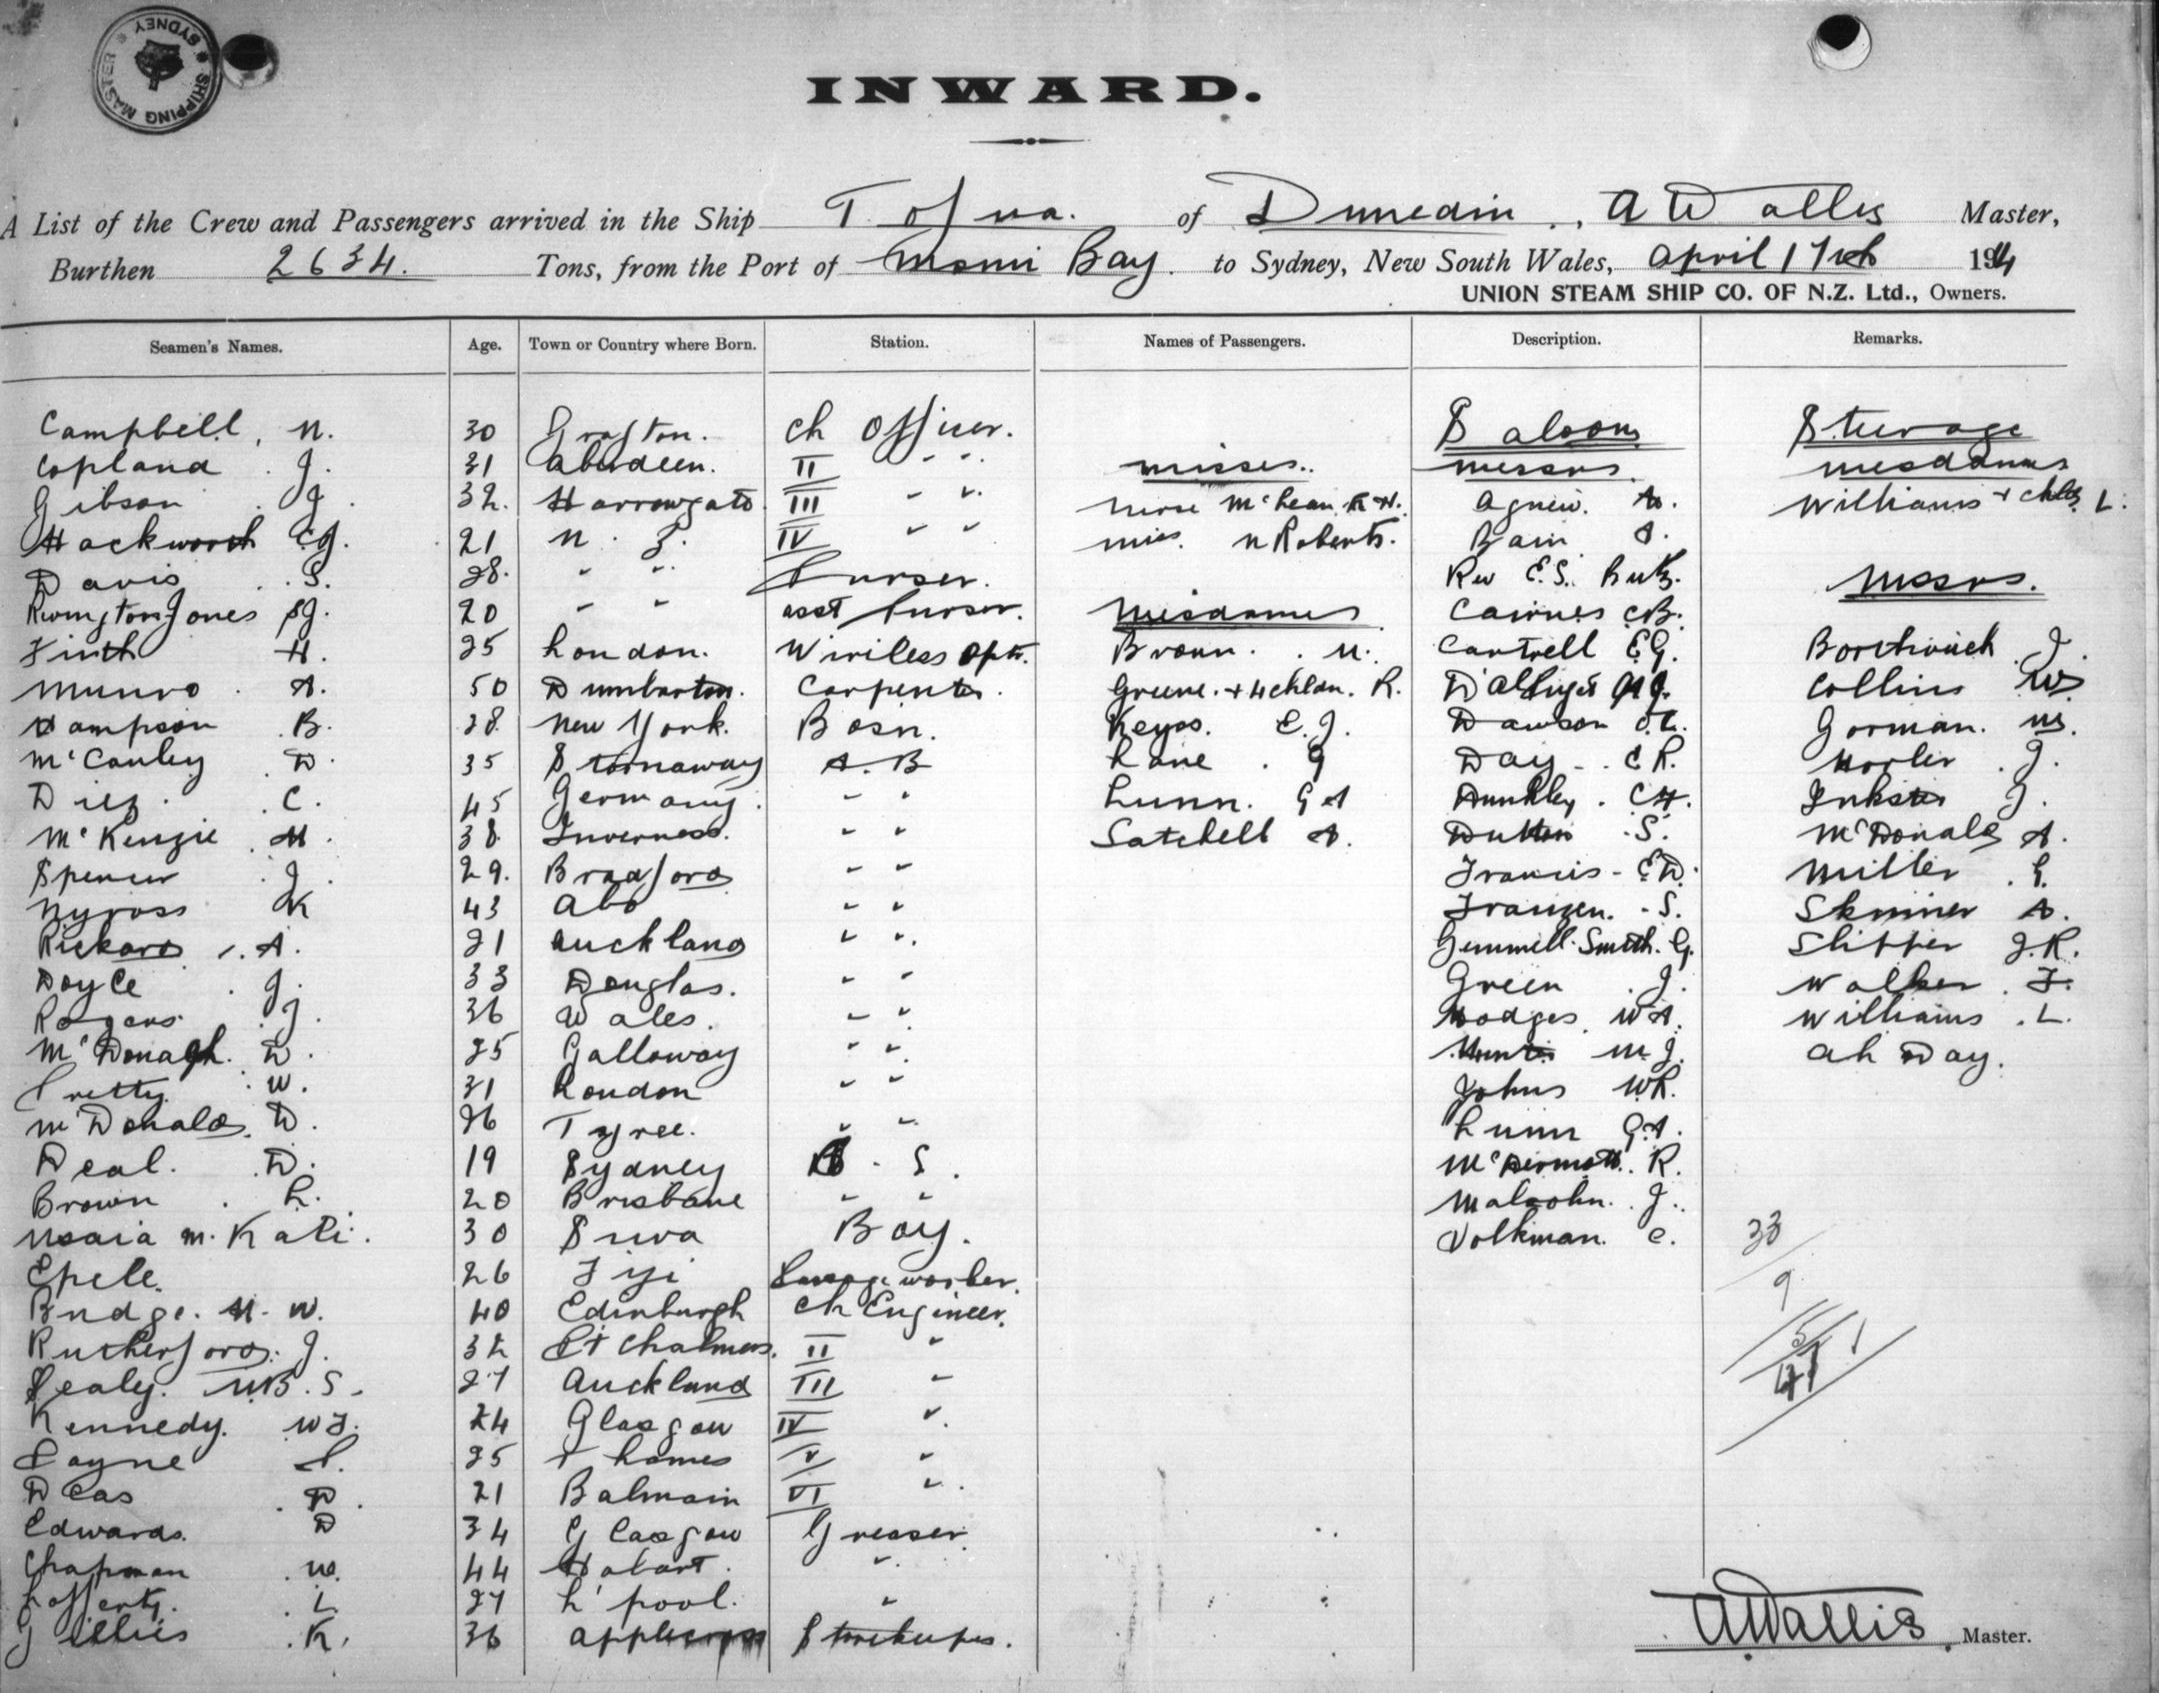 SHIPPING MASTER * SYDNEY *
INWARD.
A List of the Crew and Passengers arrived in the Ship Tofua. of Dunedin, A W Wallis Master,
Burthen 2634. Tons, from the Port of Momi Bay. to Sydney, New South Wales, April 17th 1914
UNION STEAM SHIP CO. OF N.Z. Ltd., Owners.
Seamen's Names. Age. Town or Country where Born. Station. Names of Passengers. Description. Remarks.
Campbell, N. 30 Grafton. Ch Officer. Saloon Steerage
Copland J. 31 Aberdeen. II " " Misses. Messrs. Mesdames
Gibson J 32. Harrowgate III " " Nurse McLean K H. Agnew. A. Williams + chld L.
Hackworth C.J. 21 N. Z. IV " " Miss. N Roberts. Bain A.
Davis S. 28. " " Purser. Rev E.S. Messrs.
Rivington Jones 20 " " asst Purser. Mesdames Cairnes C.B.
Firth H. 25 London. Wireless Optr. Brown. M. Cantrell E.G. Borthwick J.
Munro A. 50 Dumbarton. Carpenter. Greene. + 4 chldn. R. Collins W
Hampson B. 28. New York. Bosn. Keyes. E.J. Dawson Gorman. M.
McCauley D. 35 Stornaway A. B Lane G Day C R. Hosler J.
Diez. C. 45 Germany. " " Lunn. G A Dunkley. C H. Inkster J.
McKenzie H. 38. Inverness. " " Satchell A. Dutton S. McDonald A.
Spencer J. 29. Bradford " " Francis - E.D. Miller G.
Nyross K 43 Abo " " Franzen. - S. Skinner A.
Rickard A. 21 Auckland " " Gemmell-Smith. G. Slipper J.R.
Doyle J. 33 Douglas. " " Green J. Walker F.
Rogers J. 36 Wales. " " Hodges. W A. Williams L.
McDonagh. D. 25 Galloway " " Hunter M J. Ah Day.
Pretty. W. 31 London " " Johns W R.
McDonald. D. 26 Tyree. " " Lunn G A.
Deal. D. 19 Sydney S. McDermott. R.
Brown L. 20 Brisbane " " Malcolm. J.
M. Kati. 30 Suva Boy. Volkman. C. 33
Epele. 26 Fiji worker. 9
Budge. H. W. 40 Edinburgh Ch Engineer. 5
Rutherford. J. 32 Pt Chalmers. II " 47
Sealy. M.B. S. 27 Auckland III "
Kennedy. W F. 24 Glasgow IV "
Payne P. 25 Thames V "
Deas D. 21 Balmain VI "
Edwards. D 34 Glasgow Greaser.
Chapman W. 44 Hobart. "
Lafferty. L 27 L'pool. "
Gillies K. 36 Applecross Storekeeper.
AWWallis. Master.